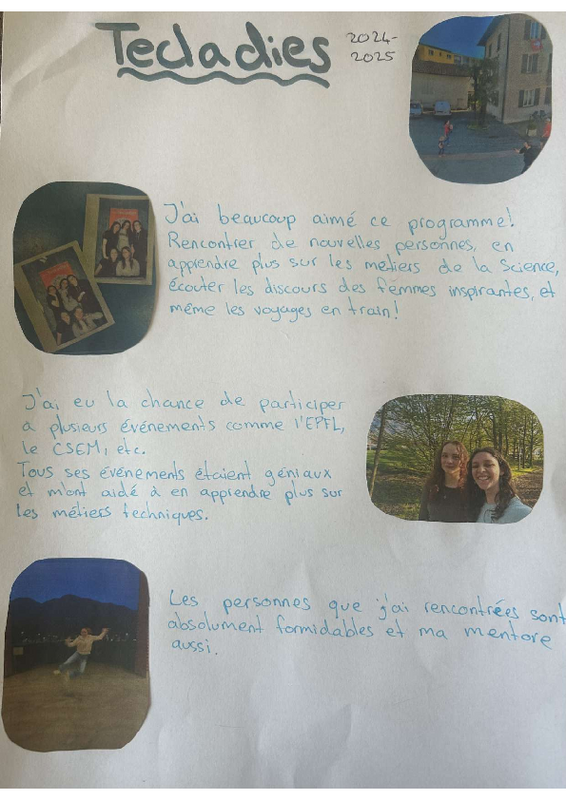 Tecladies
2024-
2025
J'ai beaucoup aimé ce programme!
Rencontrer de nouvelles personnes, en
apprendre plus sur les métiers de la Science,
écouter les discours des femmes inspirantes, et
même les voyages en train!
J'ai eu la chance de participer
à plusieurs événements comme l'EPFL,
le CSEM, etc.
Tous ses événements étaient géniaux
et m'ont aidé à en apprendre plus sur
les métiers techniques.
Les personnes que j'ai rencontrées sont
absolument formidables et ma mentore
aussi.